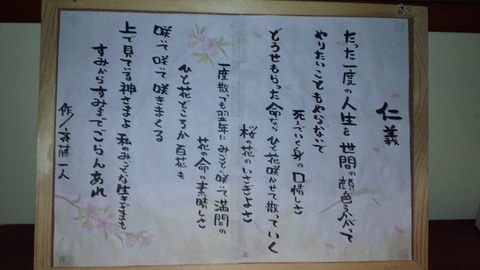 仁義
たった一度の人生を世間の顔色うかがって
やりたいこともやらないで
死んでいく身の口惜しさ
どうせもらった命ならひと花咲かせて散っていく
桜の花のいさぎよさ
一度散っても翌年にみごと咲いて満開の
花の命の素晴しさ
ひと花どころか百花も
咲いて咲いて咲きまくる
上で見ている神さまよ私のみごとな生きざまを
すみからすみまでごらんあれ
作/斎藤一人